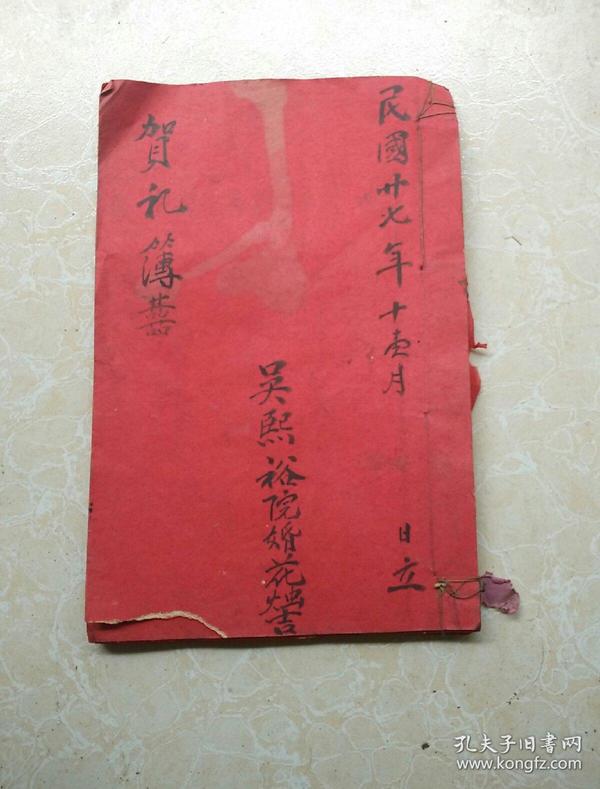 民國廿七年十壹月
日立
吴熙裕院婚花烛吉
賀礼簿
孔夫子旧書网
www.kongfz.com